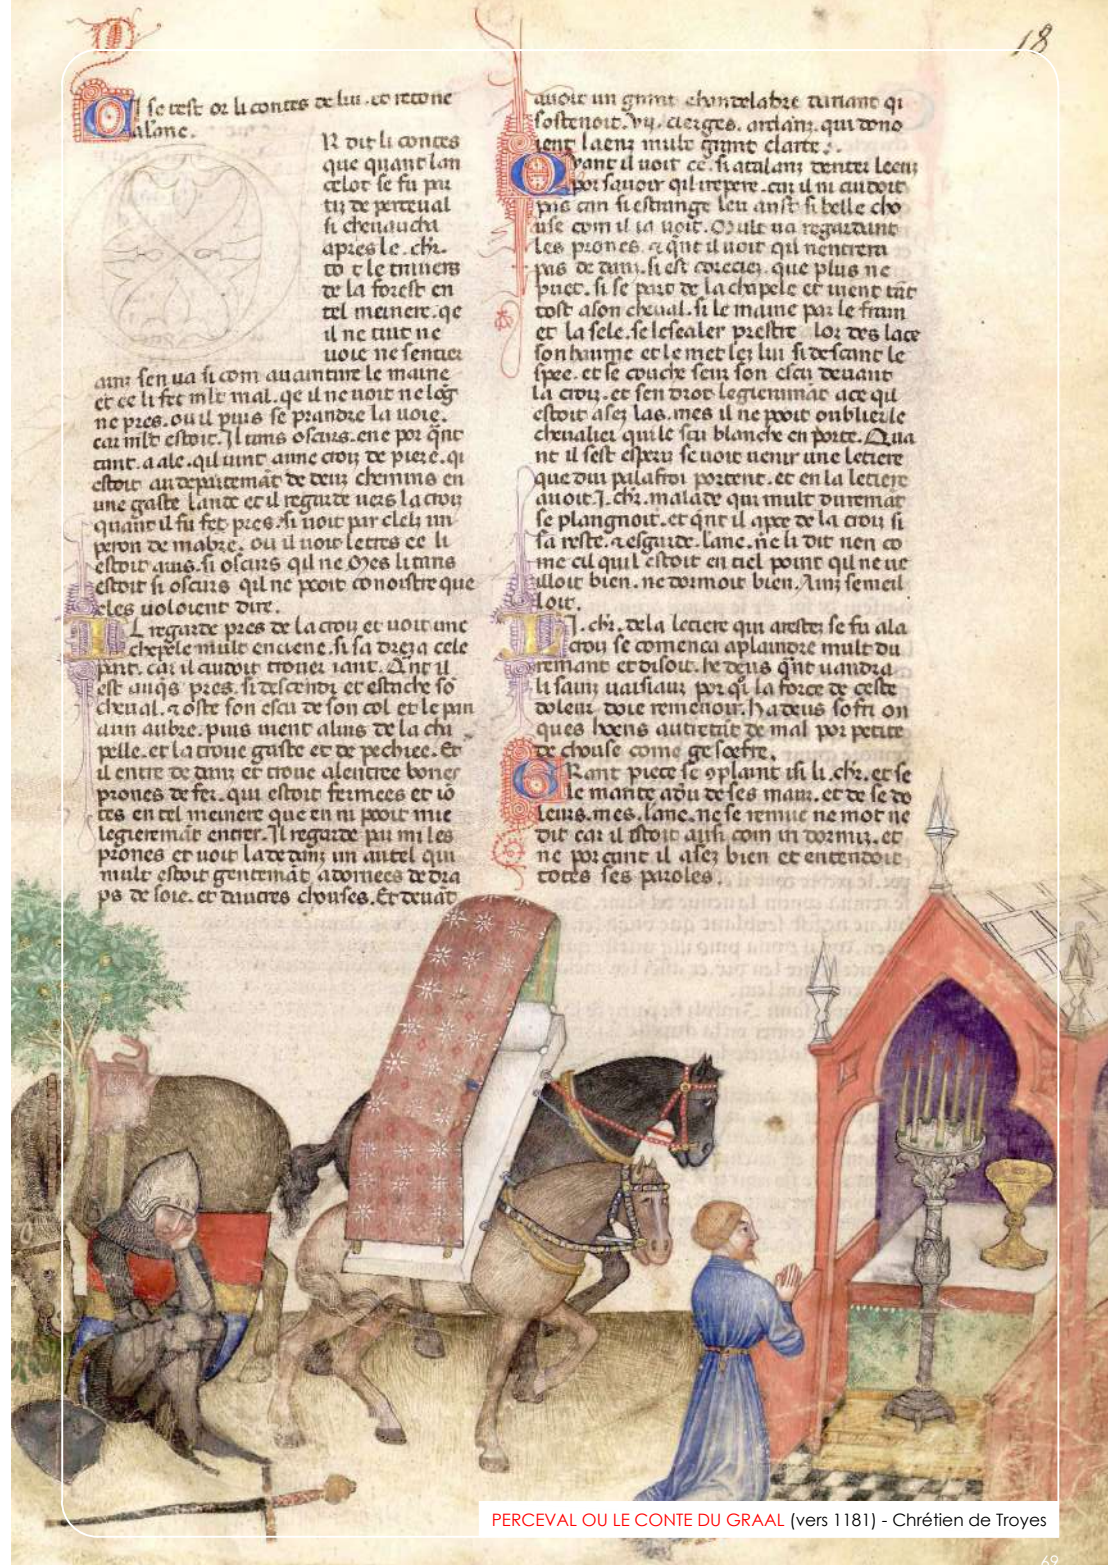 18
CI se test or li contes de lui. et retorne
a lanc.
R dit li contes
que quant lan
celot se fu par
tiz de perceval
si chevaucha
apres le .chr.
to t le travers
de la forest en
tel meinere. qe
il ne tint ne
voie ne sentier
ainz sen va si com avainture le maine
et ce li fet mlt mal. qe il ne voit ne log
ne pres. ou il puis se prandre la voie.
car mlt estoit. Il tans oscurs. ene por qnt
tant. a ale. qil vint a une croiz de piere. qi
estoit au departemat de deux chemins en
une gaste lande et il regarde vers la croiz
quant il fu fet pres. si voit par un
peron de mabre. ou il voit letres ce li
estoit avis. si oscurs qil ne Mes li tans
estoit si oscurs qil ne pooit conoistre que
eles voloient dire.
IL regarde pres de la croiz et voit une
chepele mult enciene. si sa dreza cele
part. car il cuidoit trover iant. Qnt il
est auqs pres. si descendi et estache so
cheval. & oste son escu de son col et le pan
a un aubre. puis vient a luis de la cha
pelle. et la trove gaste et de pechiee. Et
il entre de danz et trove a lentree bones
prones de fer. qui estoit fermees et io
tes en tel meinere que en ni pooit mie
legieremat entrer. Il regarde par mi les
prones et voit la dedanz un autel qui
mult estoit gentemat, adornees de dra
ps de soie. et dautres chouses. Et devat
avoit un grant chandelabre dariant qi
sostenoit. vij. cierges. ardanz. qui dono
ient laenz mult grant clarte.
Qvant il voit ce. si a talanz denter leenz
por savoir qi il repere. car il ni cuidoit
pas en si estrange leu anst si belle cho
use com il ia voit. Mult va regardant
les prones. & qnt il voit qil nentrera
pas de danz. si est coreciez. que plus ne
puet. si se part de la chapele et vient tat
tost a son cheval. si le maine par le frain
et la sele. se lesealer prestre lor des lace
son haume et le met lez lui si descaint le
spee. et se couche senz son escu devant
la croiz. et sen drot legieremat a ce qil
estoit asez las. mes il ne pooit oublier le
chevalier qui le scu blanche en porte. Qua
nt il sest esperiz se voit venir une letiere
que dui palafroi portent. et en la letiere
avoit .I. chr. malade qui mult duremat
se plangnoit. et qnt il apce de la croiz si
sa reste. & esgarde lanc. ne li dit rien co
me cil quil estoit en tiel point qil ne ve
illoit bien. ne dormoit bien. Ainz se meil
loit.
LI .chr. de la letiere qui arestez se fu a la
croiz se comenca a plaindre mult du
remant et disoit. he deus qnt vandra
li sainz vaisiaux por qi la force de ceste
doleur doie remenoir. ha deus sofri on
ques hoens autretat de mal por petite
de chouse come ge soefre.
GRant piece se oplaint isi li .chr. et se
le mante a diu de ses maux. et de se do
leurs. mes. lanc. ne se remue ne mot ne
dit car il estoit ausi com in dormiz. et
ne por cant il a asez bien et entendoit
totes ses paroles.
PERCEVAL OU LE CONTE DU GRAAL (vers 1181) - Chrétien de Troyes
69